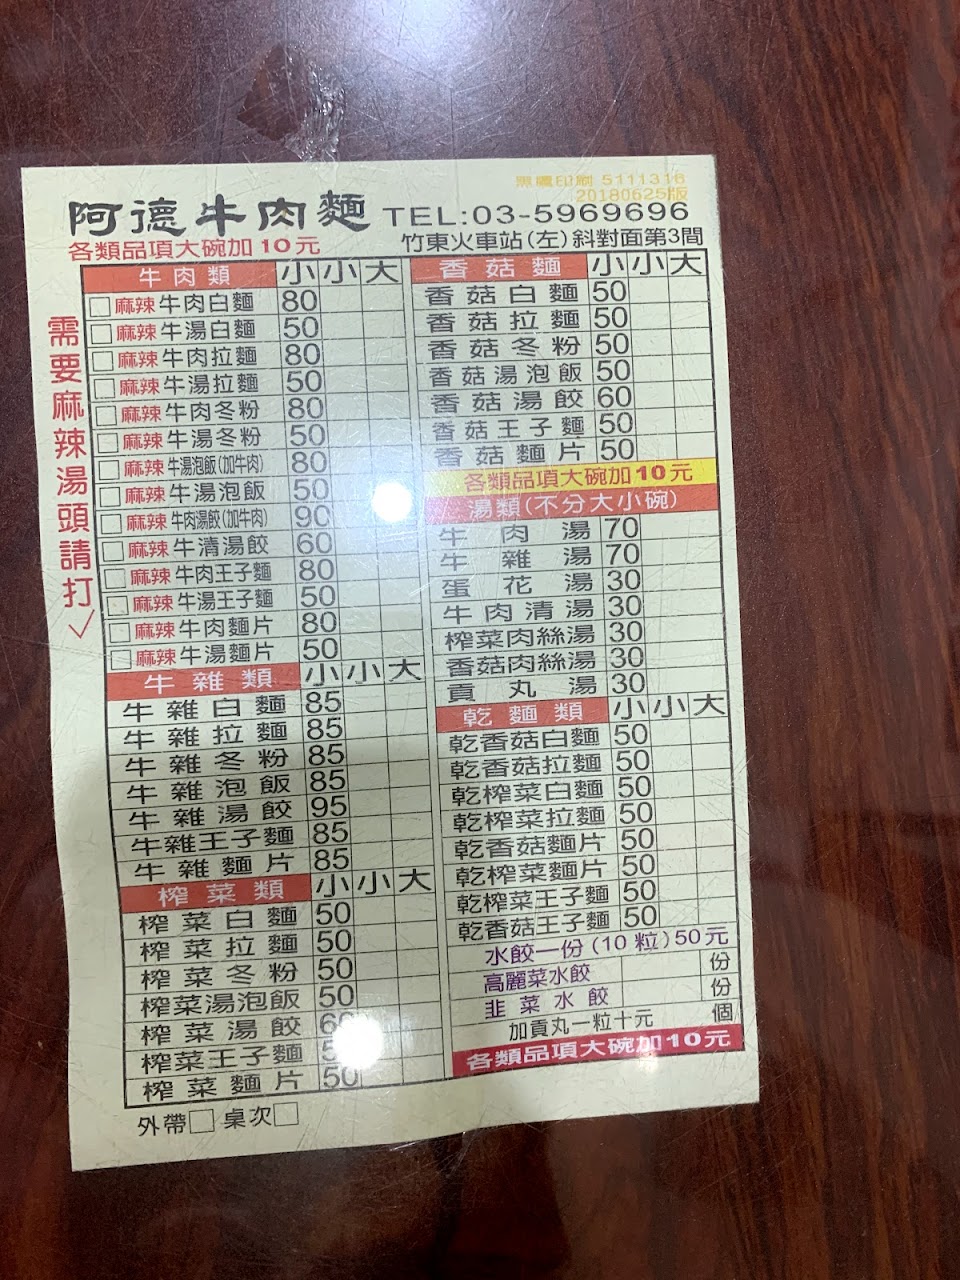 票軸印刷 5111316
20180625版
阿德牛肉麵 TEL:03-5969696
各類品項大碗加10元 竹東火車站(左)斜對面第3間
需要麻辣湯頭請打✓
牛肉類 小 小 大
□麻辣牛肉白麵 80
□麻辣牛湯白麵 50
□麻辣牛肉拉麵 80
□麻辣牛湯拉麵 50
□麻辣牛肉冬粉 80
□麻辣牛湯冬粉 50
□麻辣牛湯泡飯(加牛肉) 80
□麻辣牛湯泡飯 50
□麻辣牛肉湯餃(加牛肉) 90
□麻辣牛清湯餃 60
□麻辣牛肉王子麵 80
□麻辣牛湯王子麵 50
□麻辣牛肉麵片 80
□麻辣牛湯麵片 50
牛雜類 小 小 大
牛雜白麵 85
牛雜拉麵 85
牛雜冬粉 85
牛雜泡飯 85
牛雜湯餃 95
牛雜王子麵 85
牛雜麵片 85
榨菜類 小 小 大
榨菜白麵 50
榨菜拉麵 50
榨菜冬粉 50
榨菜湯泡飯 50
榨菜湯餃
榨菜王子麵
榨菜麵片 50
外帶□ 桌次□
香菇麵 小 小 大
香菇白麵 50
香菇拉麵 50
香菇冬粉 50
香菇湯泡飯 50
香菇湯餃 60
香菇王子麵 50
香菇麵片 50
各類品項大碗加10元
湯類(不分大小碗)
牛肉湯 70
牛雜湯 70
蛋花湯 30
牛肉清湯 30
榨菜肉絲湯 30
香菇肉絲湯 30
貢丸湯 30
乾麵類 小 小 大
乾香菇白麵 50
乾香菇拉麵 50
乾榨菜白麵 50
乾榨菜拉麵 50
乾香菇麵片 50
乾榨菜麵片 50
乾榨菜王子麵 50
乾香菇王子麵 50
水餃一份(10粒)50元
高麗菜水餃 份
韭菜水餃 份
加貢丸一粒十元 個
各類品項大碗加10元